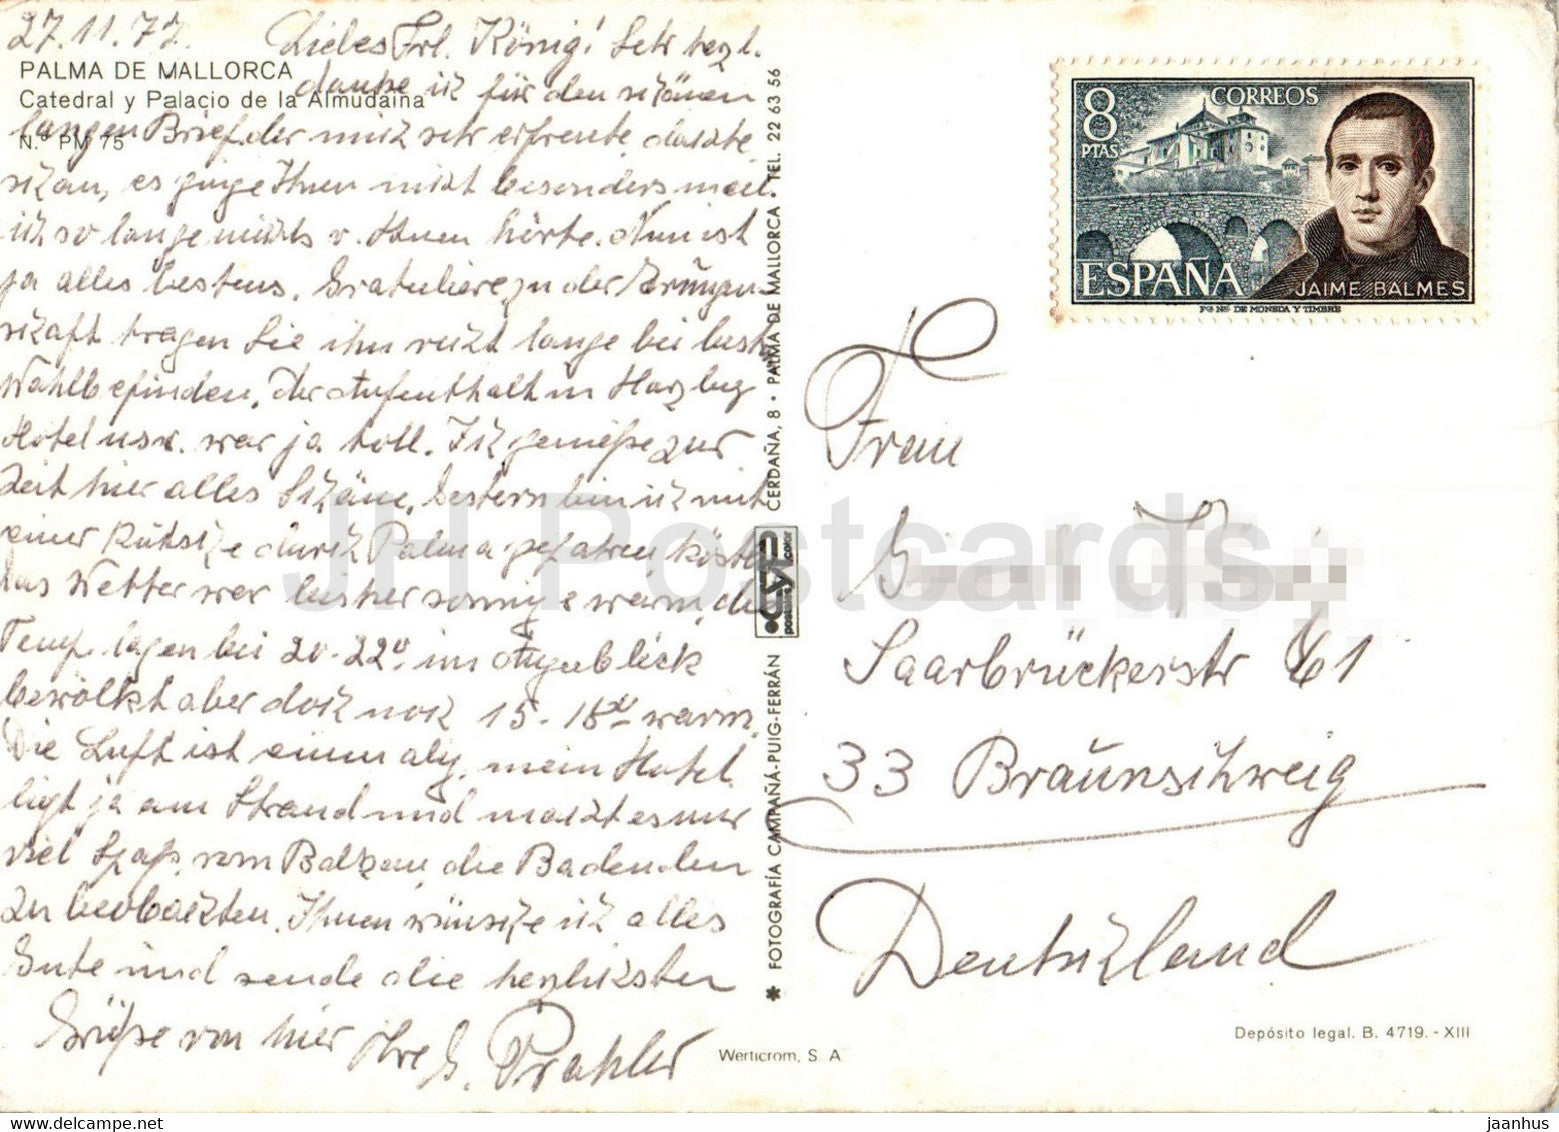 27.11.77.
Liebes Frl. König! Sehr herzl.
PALMA DE MALLORCA
danke ich für den schönen
Catedral y Palacio de la Almudaina
langen Brief, der mich sehr erfreute, dachte
N.º PM 75
schon, es ginge Ihnen nicht besonders weil
ich so lange nichts v. Ihnen hörte. Nun ist
ja alles bestens. Gratuliere zu der
tragen Sie ihn recht lange bei best.
Wohlbefinden. Der Aufenthalt in Harzbg
Hotel usw. war ja toll. Ich genieße zur
Zeit hier alles Schöne. Gestern bin ich mit
einer Kutsche durch Palma gefahren, köstl.
das Wetter war bisher sonnig e warm, die
Temp. lagen bei 20-22°. im Augenblick
bewölkt aber doch noch 15-18° warm.
Die Luft ist einmalig, mein Hotel
ligt ja am Strand und macht es mir
viel Spaß, vom Balkon, die Badenden
zu beobachten. Ihnen wünsche ich alles
Gute und sende die herzlichsten
Grüße von hier Ihre G. Prahler
FOTOGRAFÍA CAMPAÑÁ-PUIG-FERRÁN
postales color
CERDAÑA, 8 · PALMA DE MALLORCA · TEL. 22 63 56
8 PTAS
CORREOS
ESPAÑA
JAIME BALMES
F.ª N.ª DE MONEDA Y TIMBRE
Frau
Saarbrückerstr 61
33 Braunschweig
Deutschland
Depósito legal. B. 4719. - XIII
Werticrom, S. A
JH Postcards
jaanhus